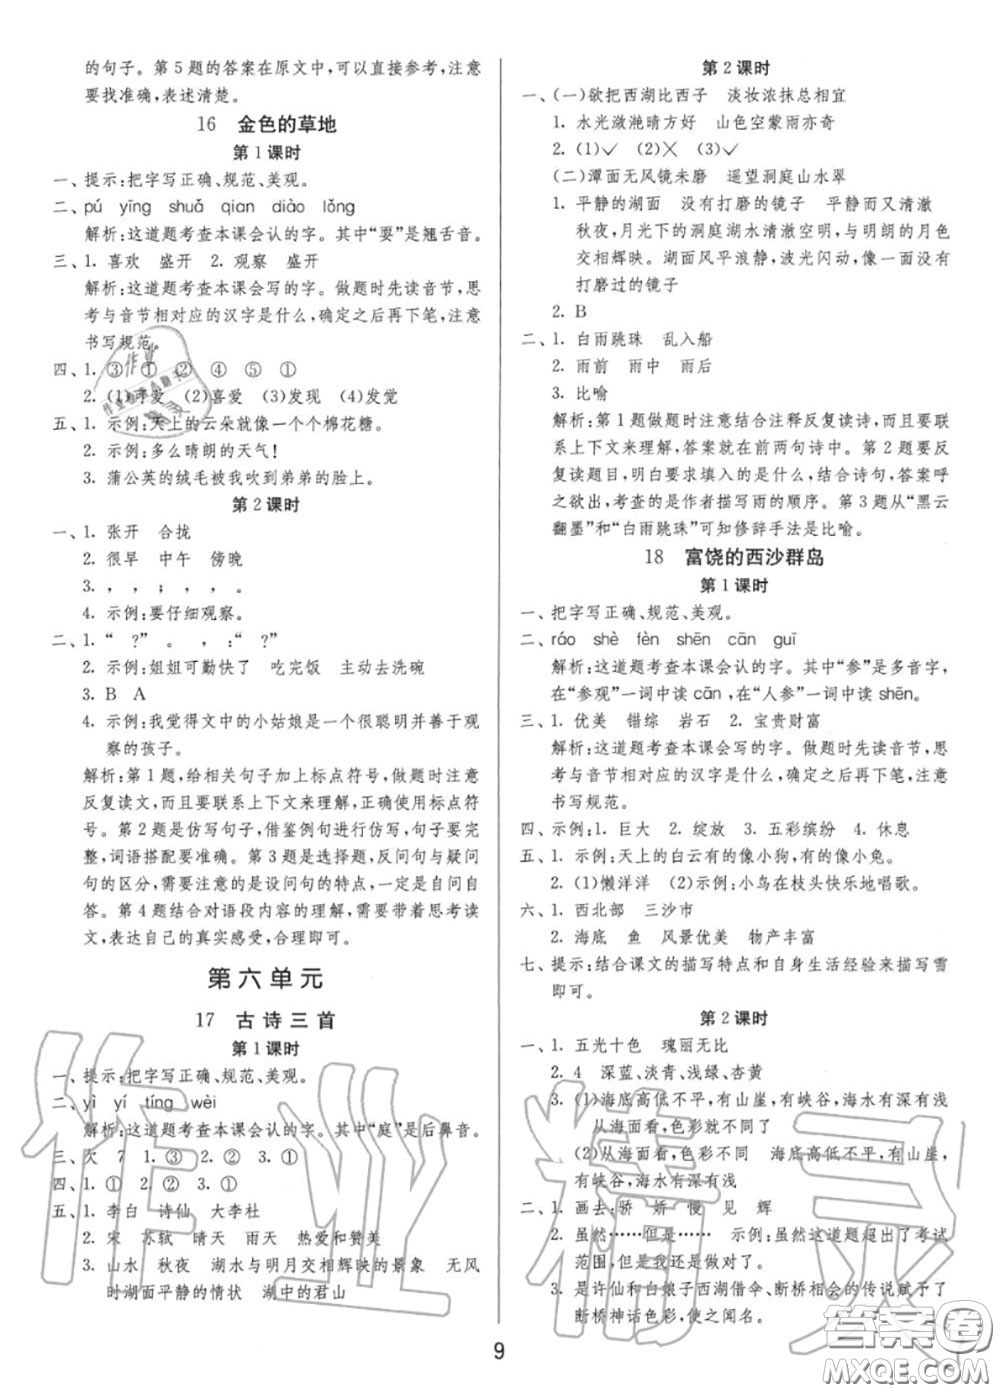 的句子。第5题的答案在原文中,可以直接参考,注意
要找准确,表述清楚。
16 金色的草地
第1课时
一、提示:把字写正确、规范、美观。
二、pú yīng shuǎ qian diào lǒng
解析:这道题考查本课会认的字。其中“耍”是翘舌音。
三、1. 喜欢 盛开 2. 观察 盛开
解析:这道题考查本课会写的字。做题时先读音节,思
考与音节相对应的汉字是什么,确定之后再下笔,注意
书写规范。
四、1. ③ ① ② ④ ⑤ ①
2. (1)可爱 (2)喜爱 (3)发现 (4)发觉
五、1. 示例:天上的云朵就像一个个棉花糖。
2. 示例:多么晴朗的天气!
3. 蒲公英的绒毛被我吹到弟弟的脸上。
第2课时
一、1. 张开 合拢
2. 很早 中午 傍晚
3. , , ; , ; , 。
4. 示例:要仔细观察。
二、1. “ ?”。 , :“ ?”
2. 示例:姐姐可勤快了 吃完饭 主动去洗碗
3. B A
4. 示例:我觉得文中的小姑娘是一个很聪明并善于观
察的孩子。
解析:第1题,给相关句子加上标点符号,做题时注意
反复读文,而且要联系上下文来理解,正确使用标点符
号。第2题是仿写句子,借鉴例句进行仿写,句子要完
整,词语搭配要准确。第3题是选择题,反问句与疑问
句的区分,需要注意的是设问句的特点,一定是自问自
答。第4题结合对语段内容的理解,需要带着思考读
文,表达自己的真实感受,合理即可。
第六单元
17 古诗三首
第1课时
一、提示:把字写正确、规范、美观。
二、yì yí tíng wèi
解析:这道题考查本课会认的字。其中“庭”是后鼻音。
三、欠 7 1. ③ 2. ② 3. ②
四、1. ① 2. ① 3. ①
五、1. 李白 诗仙 大李杜
2. 宋 苏轼 晴天 雨天 热爱和赞美
3. 山水 秋夜 湖水与明月交相辉映的景象 无风
时湖面平静的情状 湖中的君山
第2课时
一、(一)欲把西湖比西子 淡妆浓抹总相宜
1. 水光潋滟晴方好 山色空蒙雨亦奇
2. (1)✓ (2)✕ (3)✓
(二)潭面无风镜未磨 遥望洞庭山水翠
1. 平静的湖面 没有打磨的镜子 平静而又清澈
秋夜,月光下的洞庭湖水清澈空明,与明朗的月色
交相辉映。湖面风平浪静,波光闪动,像一面没有
打磨过的镜子
2. B
二、1. 白雨跳珠 乱入船
2. 雨前 雨中 雨后
3. 比喻
解析:第1题做题时注意结合注释反复读诗,而且要联
系上下文来理解,答案就在前两句诗中。第2题要反
复读题目,明白要求填入的是什么,结合诗句,答案呼
之欲出,考查的是作者描写雨的顺序。第3题从“黑云
翻墨”和“白雨跳珠”可知修辞手法是比喻。
18 富饶的西沙群岛
第1课时
一、把字写正确、规范、美观。
二、ráo shè fèn shēn cān guī
解析:这道题考查本课会认的字。其中“参”是多音字,
在“参观”一词中读 cān,在“人参”一词中读 shēn。
三、1. 优美 错综 岩石 2. 宝贵财富
解析:这道题考查本课会写的字。做题时先读音节,思
考与音节相对应的汉字是什么,确定之后再下笔,注意
书写规范。
四、示例:1. 巨大 2. 绽放 3. 五彩缤纷 4. 休息
五、1. 示例:天上的白云有的像小狗,有的像小兔。
2. (1)懒洋洋 (2)示例:小鸟在枝头快乐地唱歌。
六、1. 西北部 三沙市
2. 海底 鱼 风景优美 物产丰富
七、提示:结合课文的描写特点和自身生活经验来描写雪
即可。
第2课时
一、1. 五光十色 瑰丽无比
2. 4 深蓝、淡青、浅绿、杏黄
3. (1)海底高低不平,有山崖,有峡谷,海水有深有浅
从海面看,色彩就不同了
(2)从海面看,色彩不同 海底高低不平,有山崖,
有峡谷,海水有深有浅
二、1. 画去:骄 娇 慢 见 辉
2. 虽然……但是…… 示例:虽然这道题超出了考试
范围,但是我还是做对了。
3. 是许仙和白娘子西湖借伞、断桥相会的传说赋予了
断桥神话色彩,使之闻名。
9
作业精灵
答案圈
MXQE.COM